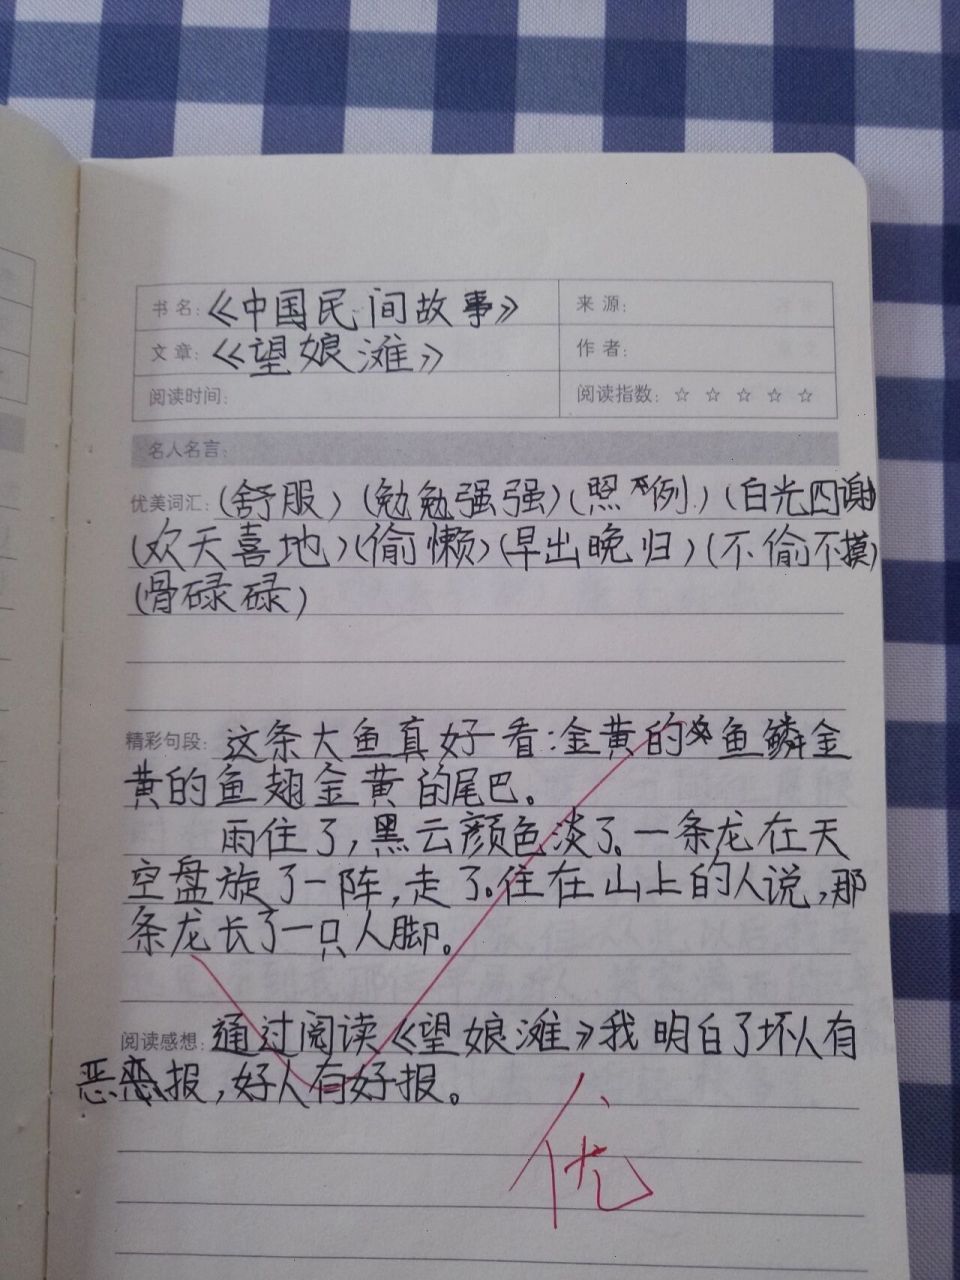 书名:《中国民间故事》 来源:
文章:《望娘滩》 作者:
阅读时间: 阅读指数: ☆ ☆ ☆ ☆ ☆
名人名言:
优美词汇:(舒服)(勉勉强强)(照例)(白光四谢)
(欢天喜地)(偷懒)(早出晚归)(不偷不摸)
(骨碌碌)
精彩句段: 这条大鱼真好看:金黄的鱼鳞金
黄的鱼翅金黄的尾巴。
雨住了,黑云颜色淡了。一条龙在天
空盘旋了一阵,走了。住在山上的人说,那
条龙长了一只人脚。
阅读感想:通过阅读《望娘滩》我明白了坏人有
恶报,好人有好报。
优